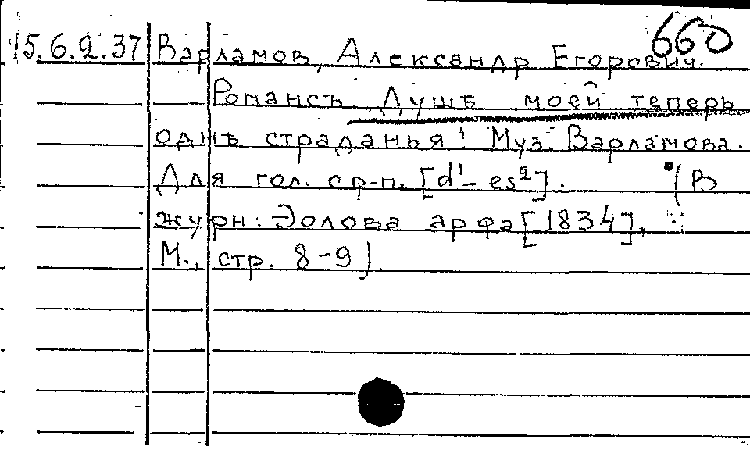 660
15.6.2.37 Варламов, Александр Егорович.
Романсъ Душѣ моей теперь
однѣ страданья! Муз. Варламова.
Для гол. с ф-п. [d¹-es²]. (В
журн: Эолова арфа [1834],
М., стр. 8-9)